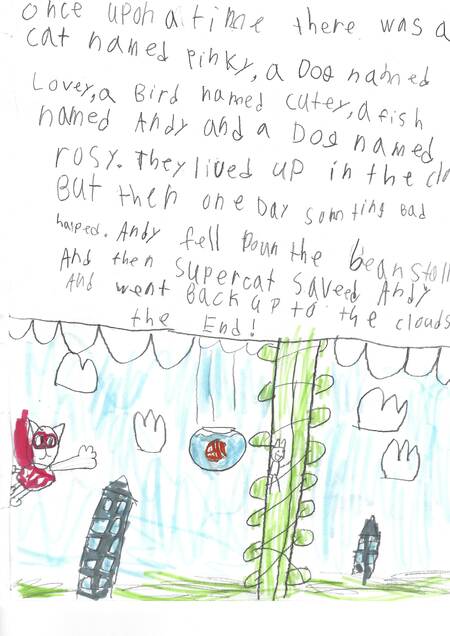 once upon a time there was a
cat named pinky, a Dog nabned
Lovey, a Bird named cutey, a fish
named Andy and a Dog named
rosy. They lived up in the clo
But then one Day somting Bad
haiped. Andy fell Doun the beanstoll
And then supercat saveed Andy
And went Back up to the clouds
the End!